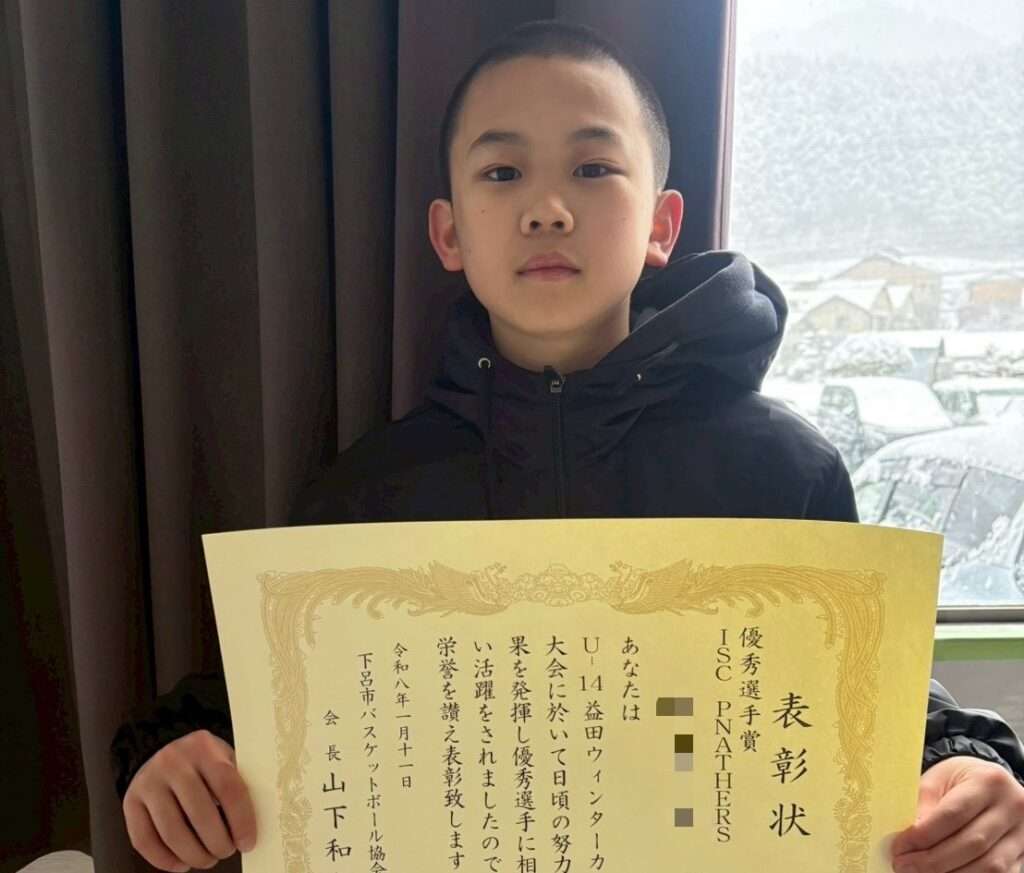 表彰状
優秀選手賞
ISC PNATHERS
あなたは
U-14益田ウィンターカ
大会に於いて日頃の努力
果を発揮し優秀選手に相
い活躍をされましたので
栄誉を讃え表彰致します
令和八年一月十一日
下呂市バスケットボール協会
会長 山下和